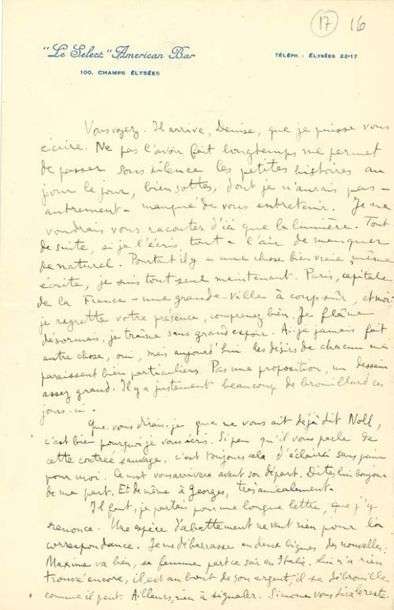 17 16
"Le Select" American Bar
TÉLÉPH. : ÉLYSÉES 22-17
100, CHAMPS ÉLYSÉES
Vous voyez. Il arrive, Denise, que je puisse vous
écrire. Ne pas l'avoir fait longtemps me permet
de passer sous silence les petites histoires au
jour le jour, bien sottes, dont je n'aurais pas -
autrement - manqué de vous entretenir. Je ne
voudrais vous raconter d'ici que la lumière. Tout
de suite, si je l'écris, tout a l'air de manquer
de naturel. Pourtant il y a une chose bien vraie même
écrite, je suis tout seul maintenant. Paris, capitale
de la France - une grande ville à coup sûr, et moi
je regrette votre présence, comprenez bien. Je flâne
désormais, je traîne sans grand espoir. Ai-je jamais fait
autre chose, oui, mais aujourd'hui les désirs de chacun me
paraissent bien particuliers. Pas une proposition, un dessein
assez grand. Il y a justement beaucoup de brouillard ces
jours-ci.
Que vous dirai-je que ne vous ait déjà dit Noll,
c'est bien pourquoi je vous écris. Si peu qu'il vous parle de
cette contrée sauvage, c'est toujours cela d'éclairci sans peine
pour moi. Le mot vous arrivera avant son départ. Dites-lui bonjour
de ma part. Et de même à Georges, très amicalement.
Il faut, je partais pour une longue lettre, que j'y
renonce. Une espèce d'abattement ne vaut rien pour la
correspondance. Je me débarrasse en deux lignes des nouvelles :
Maxime va bien, sa femme part ce soir en Italie, lui n'a rien
trouvé encore, il est au bout de son argent, il se débrouille
comme il peut. Ailleurs, rien à signaler. Simone vous dira le reste.